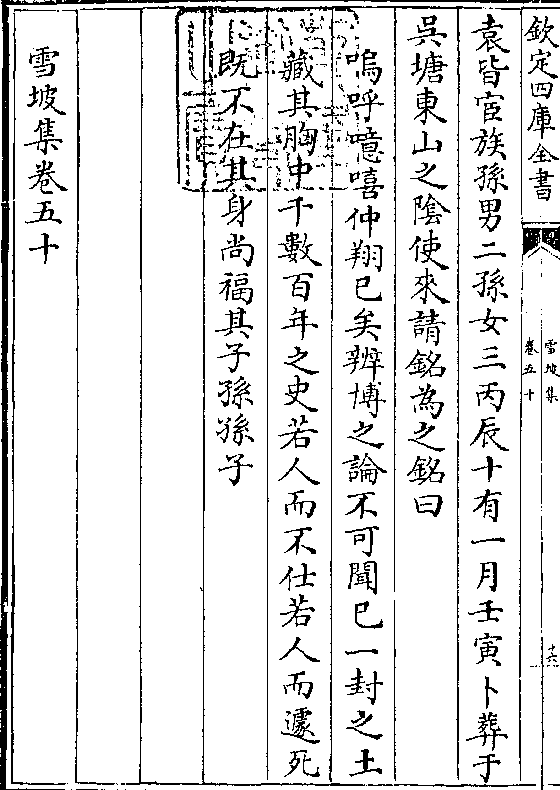 欽定四庫全書
雪坡集
卷五十
十六
袁皆宦族孫男二孫女三丙辰十有一月壬寅卜葬于
吳塘東山之隂使來請銘為之銘曰
嗚呼噫嘻仲翔已矣辨博之論不可聞已一封之土
藏其胸中千數百年之史若人而不仕若人而遽死
既不在其身尚福其子孫孫子
雪坡集卷五十